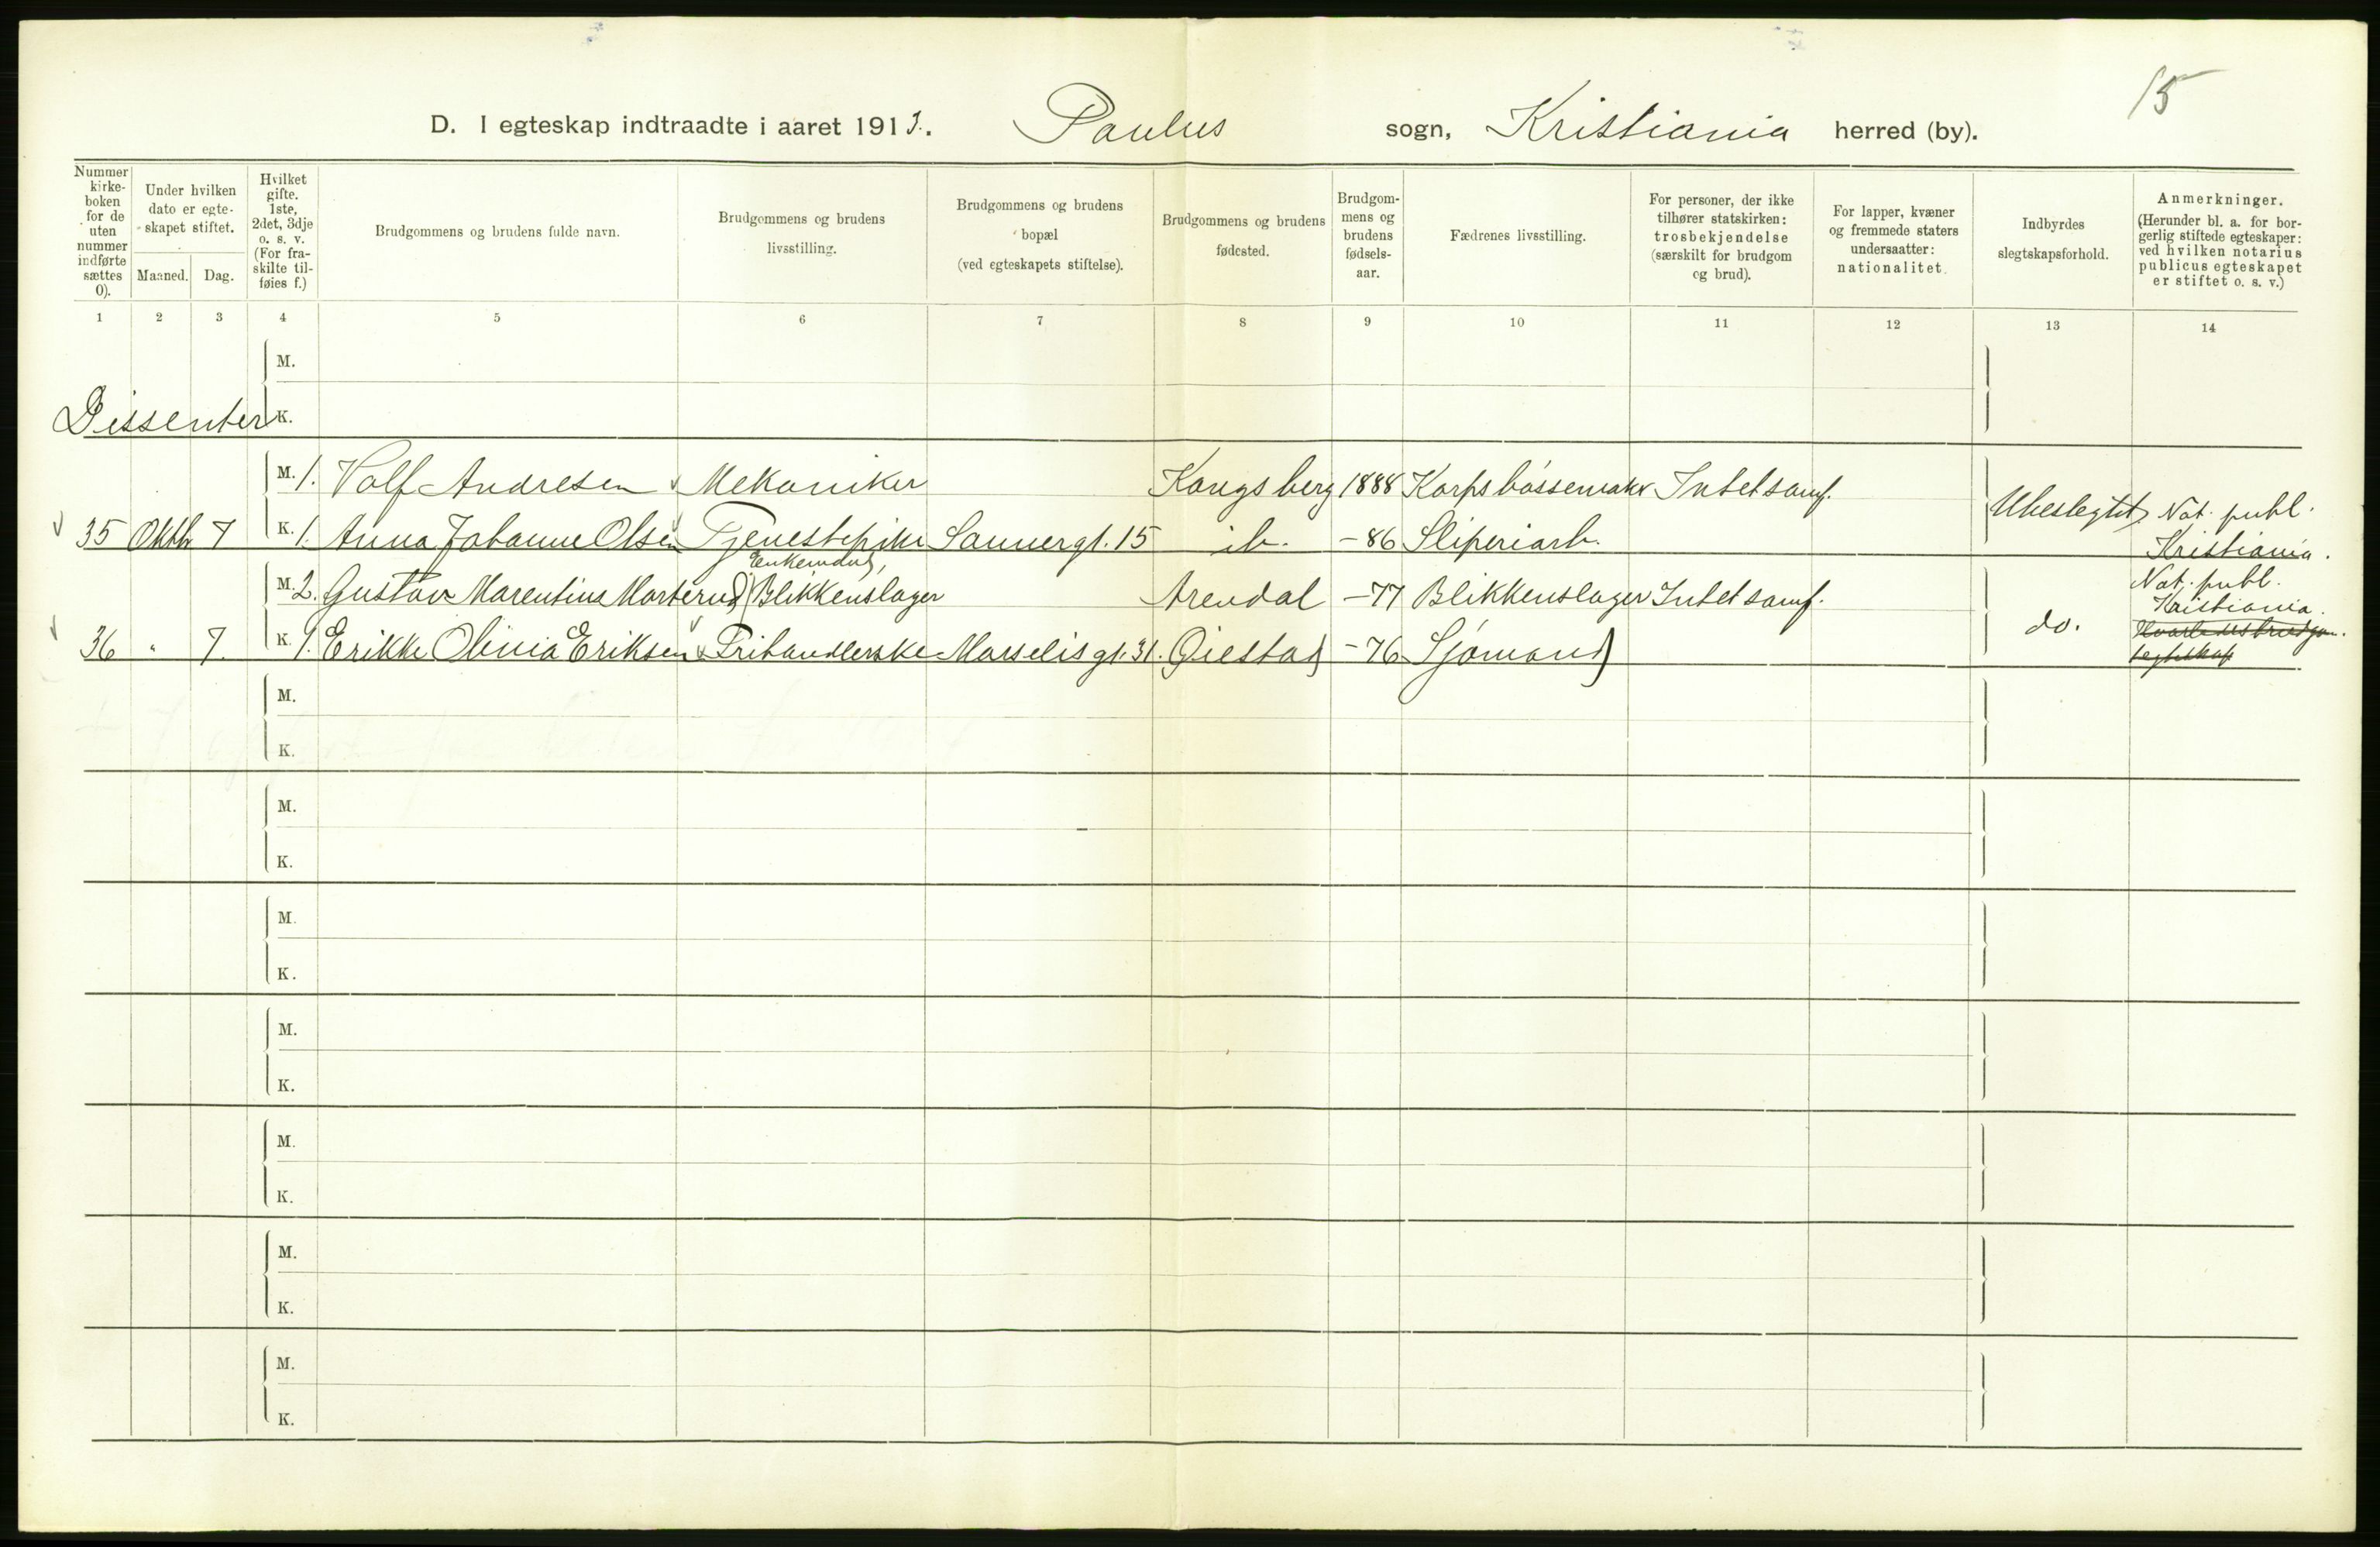 15
D. I egteskap indtraadte i aaret 1913. Paulus sogn, Kristiania herred (by).
Nummer kirke- boken for de uten nummer indførte sættes 0).
Under hvilken dato er egte- skapet stiftet.
Maaned. Dag.
Hvilket gifte. 1ste, 2det, 3dje o. s. v. (For fra- skilte til- føies f.)
Brudgommens og brudens fulde navn.
Brudgommens og brudens livsstilling.
Brudgommens og brudens bopæl (ved egteskapets stiftelse).
Brudgommens og brudens fødested.
Brudgom- mens og brudens fødsels- aar.
Fædrenes livsstilling.
For personer, der ikke tilhører statskirken: trosbekjendelse (særskilt for brudgom og brud).
For lapper, kvæner og fremmede staters undersaatter: nationalitet.
Indbyrdes slegtskapsforhold.
Anmerkninger. (Herunder bl. a. for bor- gerlig stiftede egteskaper: ved hvilken notarius publicus egteskapet er stiftet o. s. v.)
1 2 3 4 5 6 7 8 9 10 11 12 13 14
M.
Dissenter K.
M. 1. Volf Andresen Mekaniker Kongsberg 1888 Korpsbøssemaker Intet samf.
35 Oktbr 7 K. 1. Anna Johanne Olsen Tjenestepike Sannergt. 15 ib. -86 Sliperiarb. Ubeslegtet Not. publ. Kristiania.
Enkemand,
M. 2. Gustav Marentius Morterud Blikkenslager Arendal -77 Blikkenslager Intet samf. Not. publ. Kristiania.
36 " 7. K. 1. Erikke Olivia Eriksen Frihandlerske Marselisgt. 31. Øiestad -76 Sjømand do.
M.
K.
M.
K.
M.
K.
M.
K.
M.
K.
M.
K.
M.
K.